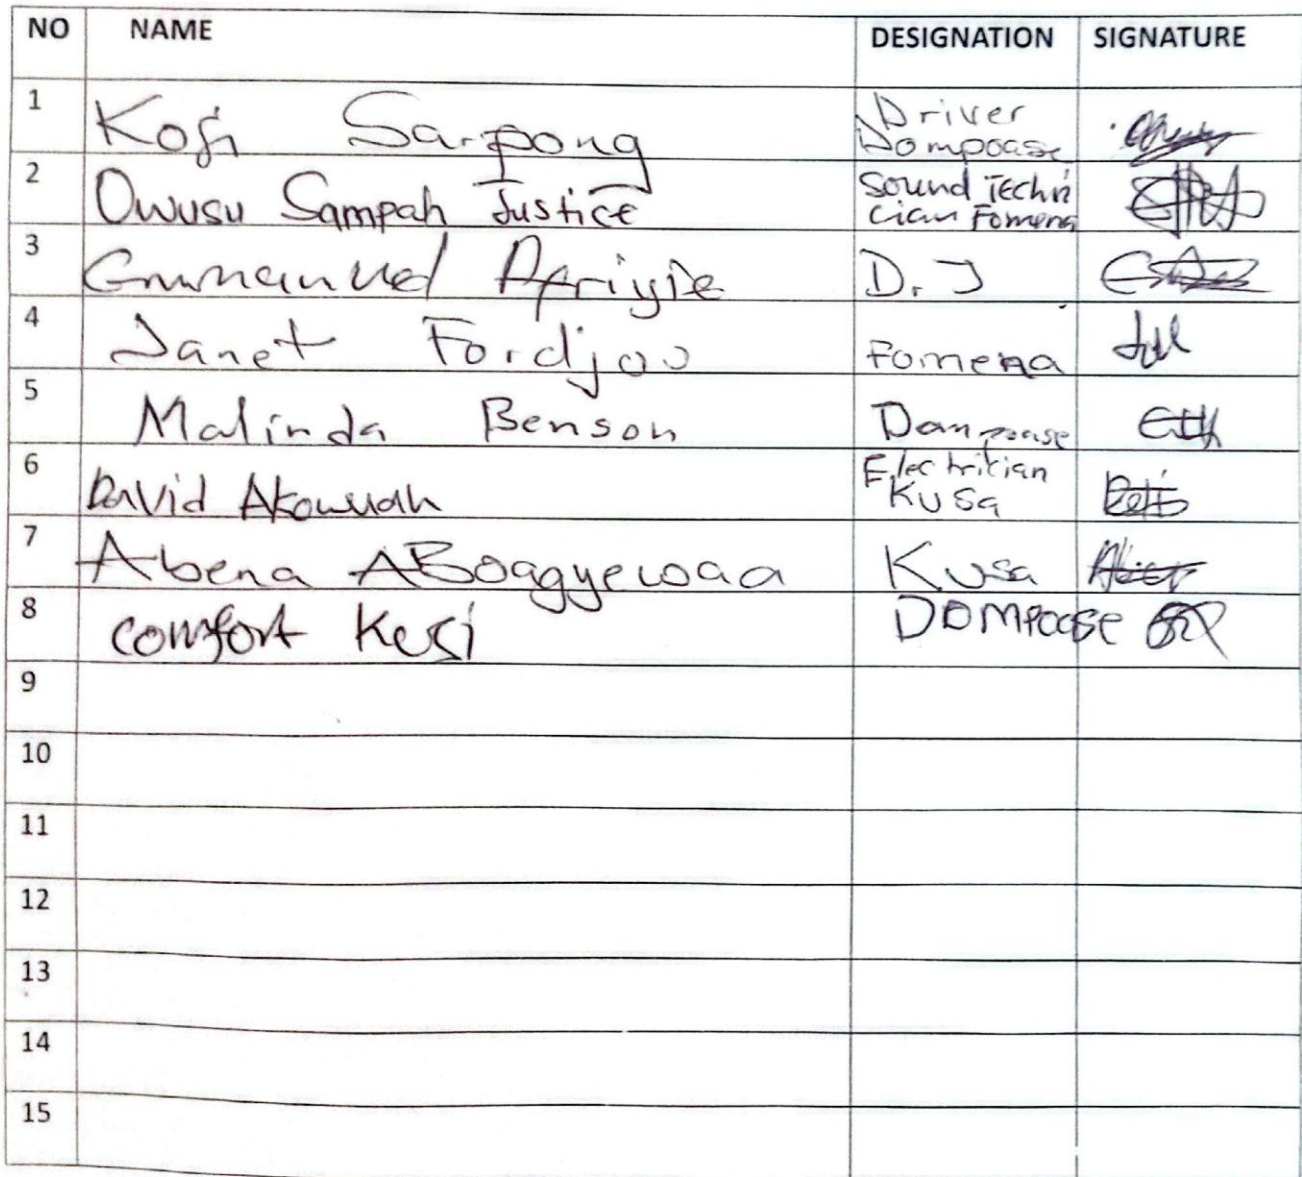 NO NAME DESIGNATION SIGNATURE
1 Kofi Sarpong Driver Dompoase
2 Owusu Sampah Justice Sound Techni cian Fomena
3 Emmanuel Afriyie D.J
4 Janet Fordjou Fomena
5 Malinda Benson Dompoase
6 David Akowuah Electritian Kusa
7 Abena ABoagyewaa Kusa
8 comfort Kesi DOMPOASE
9
10
11
12
13
14
15